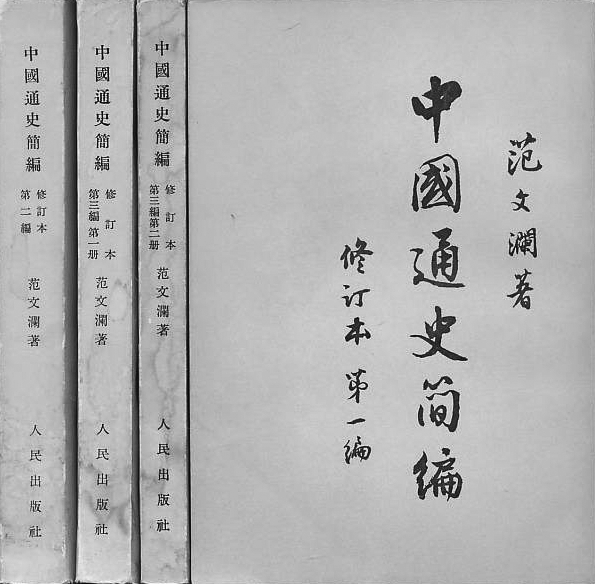 范文瀾著
中國通史簡編
修订本 第一編
中國通史簡編
修訂本
第三編第二册
范文瀾著
人民出版社
中國通史簡編
修訂本
第三編第一册
范文瀾著
人民出版社
中國通史簡編
修訂本
第二編
范文瀾著
人民出版社